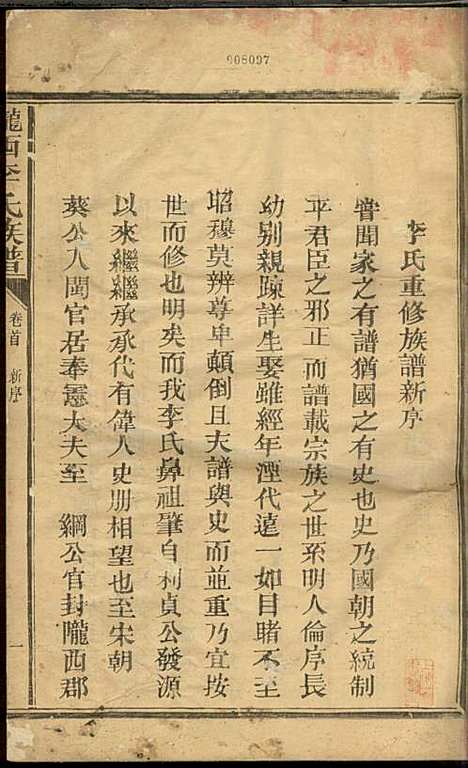 908097
李氏重修族譜新序
嘗聞家之有譜猶國之有史也史乃國朝之統制
平君臣之邪正而譜載宗族之世系明人倫序長
幼別親疎詳生娶雖經年湮代遠一如目睹不至
昭穆莫辨尊卑顛倒且夫譜與史而並重乃宜按
世而修也明矣而我李氏鼻祖肇自利貞公發源
以來繼繼承承代有偉人史册相望也至宋朝
葵公入閩官居奉憲大夫至 綱公官封隴西郡
隴西李氏族譜
卷首 新序
一